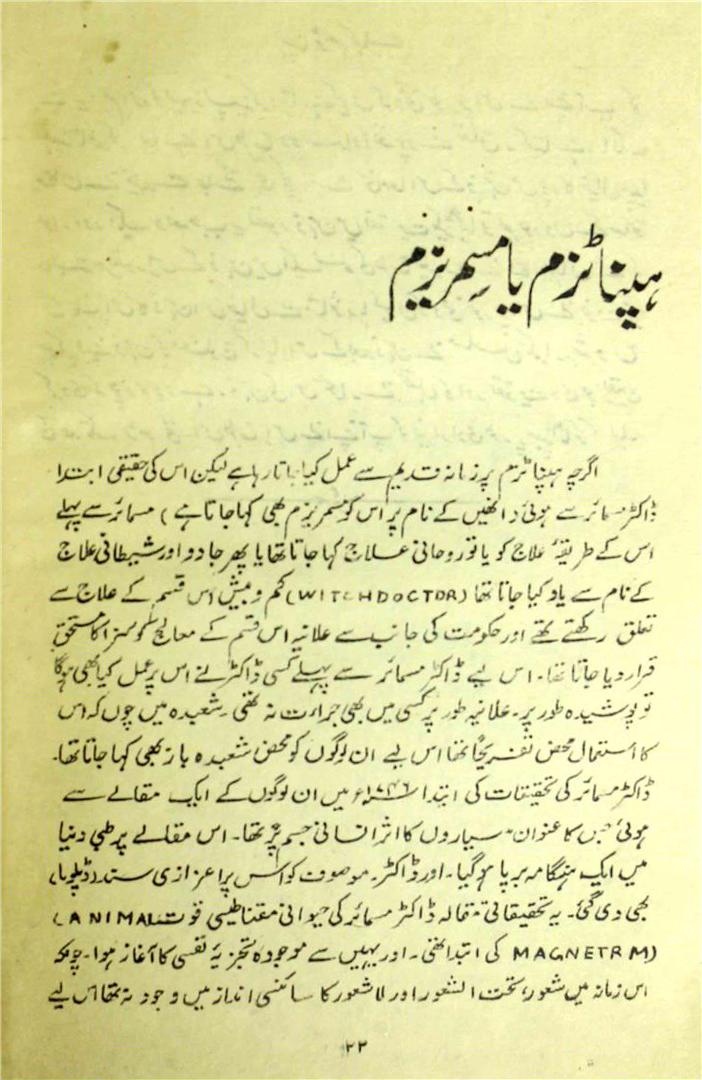 ہپناٹزم یا مسمریزم
اگرچہ ہپناٹزم پر زمانہ قدیم سے عمل کیا جاتا رہا ہے لیکن اس کی حقیقی ابتدا
ڈاکٹر مسمائر سے ہوئی (انھیں کے نام پر اس کو مسمریزم بھی کہا جاتا ہے) مسمائر سے پہلے
اس کے طریقۂ علاج کو یا تو روحانی علاج کہا جاتا تھا یا پھر جادو اور شیطانی علاج
کے نام سے یاد کیا جاتا تھا (WITCHDOCTOR) کم و بیش اس قسم کے علاج سے
تعلق رکھتے تھے اور حکومت کی جانب سے علانیہ اس قسم کے معالج کو سزا کا مستحق
قرار دیا جاتا تھا۔ اس لیے ڈاکٹر مسمائر سے پہلے کسی ڈاکٹر نے اس پر عمل کیا بھی ہوگا
تو پوشیدہ طور پر۔ علانیہ طور پر کسی میں بھی جراءت نہ تھی شعبدہ میں چوں کہ اس
کا استعمال محض تفریحاً تھا اس لیے ان لوگوں کو محض شعبدہ باز بھی کہا جاتا تھا۔
ڈاکٹر مسمائر کی تحقیقات کی ابتدا میں ان لوگوں کے ایک مقالے سے
ہوئی جس کا عنوان "سیاروں کا اثر انسانی جسم پر" تھا۔ اس مقالے پر طبی دنیا
میں ایک ہنگامہ برپا ہوگیا۔ اور ڈاکٹر موصوف کو اس پر اعزازی سند (ڈپلوما)
بھی دی گئی۔ یہ تحقیقاتی مقالہ ڈاکٹر مسمائر کی حیوانی مقناطیسی قوت (ANIMAL
MAGNETRM) کی ابتدا تھی۔ اور یہیں سے موجودہ تجزیۂ نفسی کا آغاز ہوا۔ چونکہ
اس زمانہ میں شعور، تحت الشعور اور لاشعور کا سائنسی انداز میں وجود نہ تھا اس لیے
۳۳